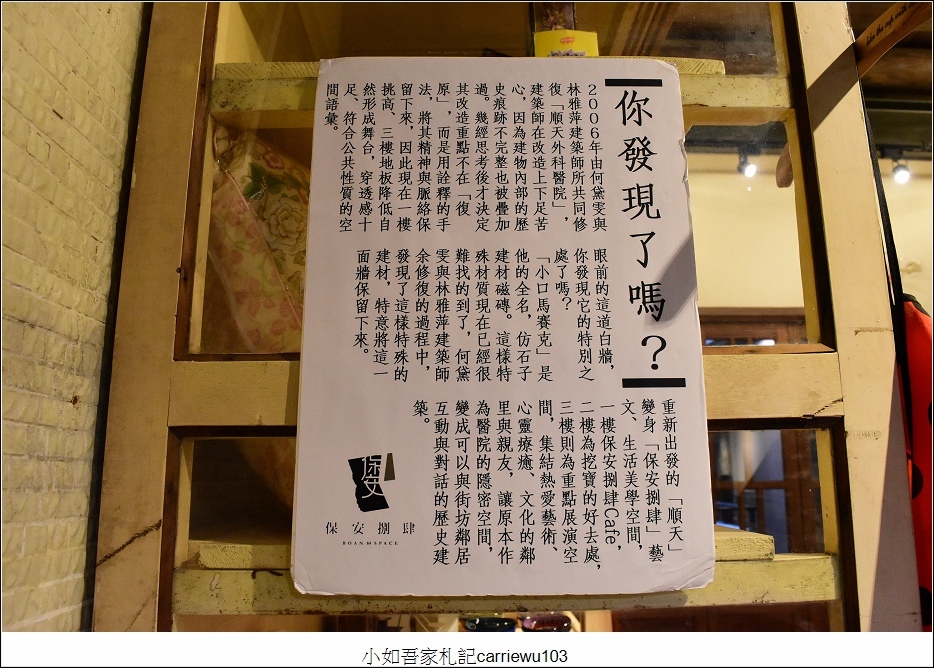 你發現了嗎？
2006年由何黛雯與
林雅萍建築師所共同修
復「順天外科醫院」，
建築師在改造上下足苦
心，因為建物內部的歷
史痕跡不完整也被疊加
過。幾經思考後才決定
其改造重點不在「復
原」，而是用詮釋的手
法，將其精神與脈絡保
留下來，因此現在一樓
挑高、三樓地板降低自
然形成舞台，穿透感十
足、符合公共性質的空
間語彙。
眼前的這道白牆，
你發現它的特別之
處了嗎？
「小口馬賽克」是
他的全名，仿石子
建材磁磚。這樣特
殊材質現在已經很
難找的到了，何黛
雯與林雅萍建築師
余修復的過程中，
發現了這樣特殊的
建材，特意將這一
面牆保留下來。
重新出發的「順天」
變身「保安捌肆」藝
文、生活美學空間，
一樓保安捌肆Cafe，
二樓為挖寶的好去處，
三樓則為重點展演空
間，集結熱愛藝術、
心靈療癒、文化的鄰
里與親友，讓原本作
為醫院的隱密空間，
變成可以與街坊鄰居
互動與對話的歷史建
築。
保安
保安捌肆
BOAN 84 SPACE
小如吾家札記carriewu103